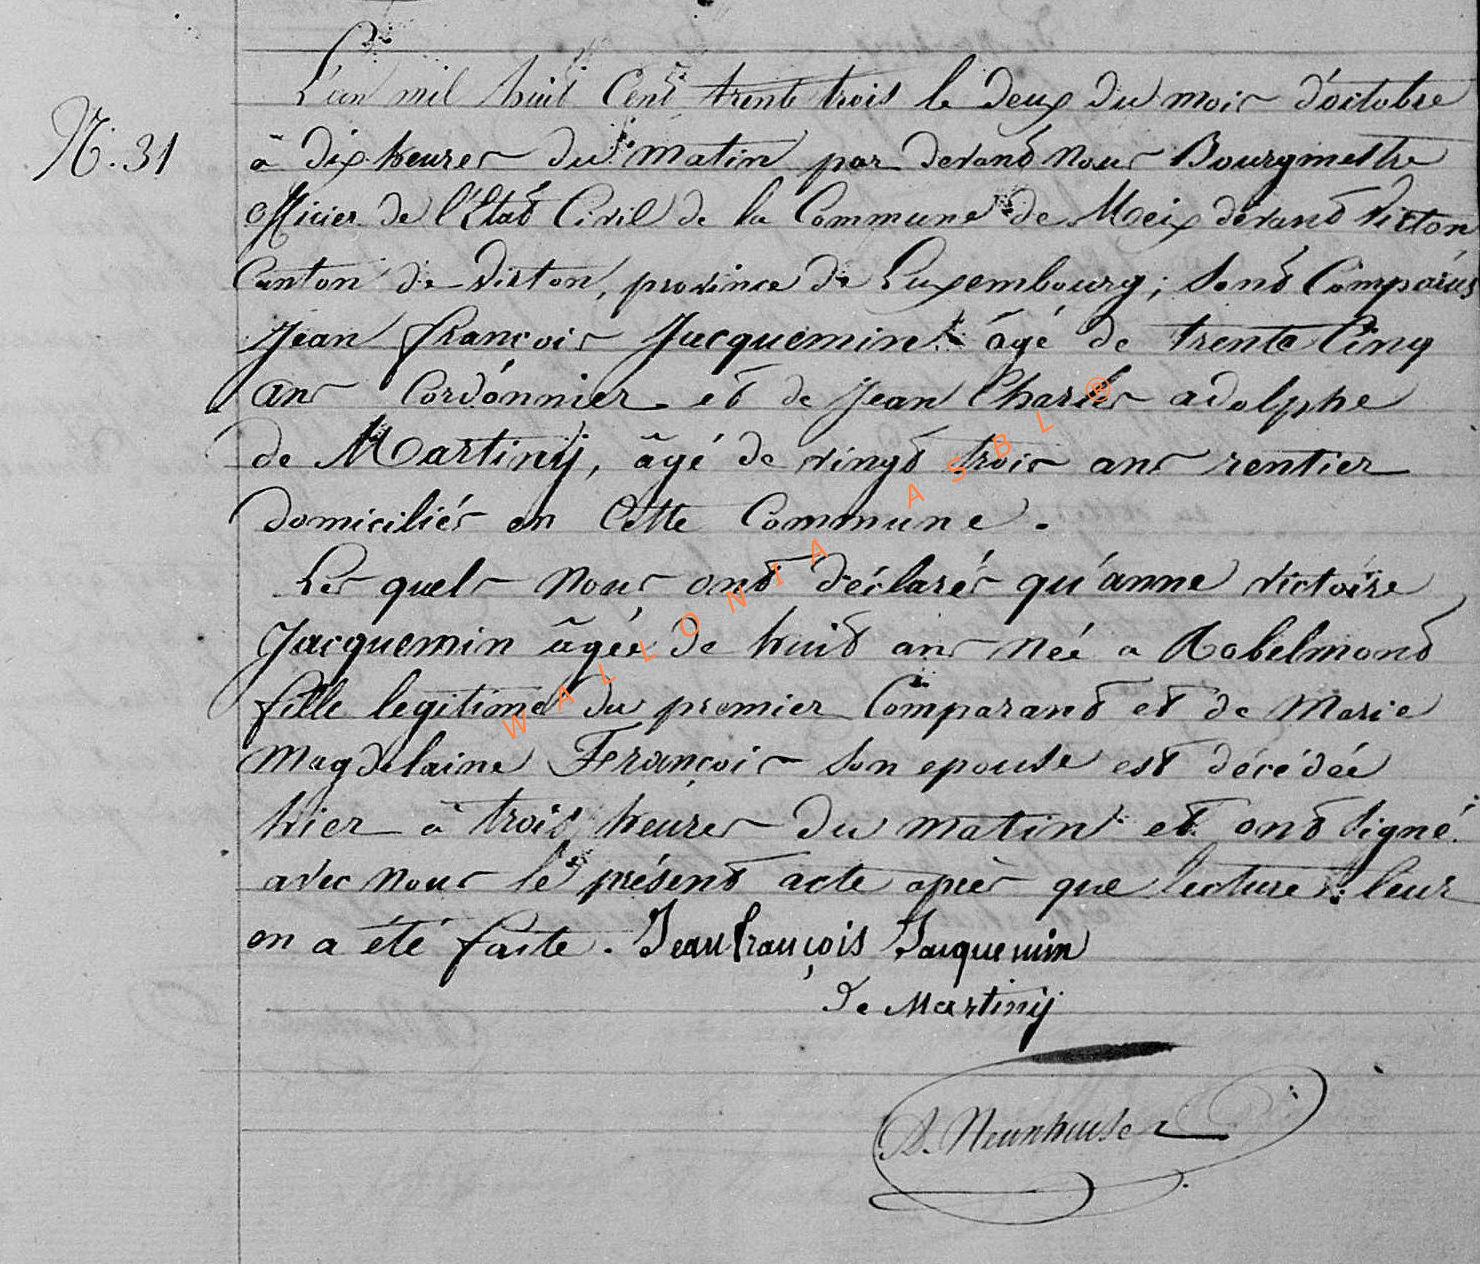 L'an mil huit Cent trente trois le deux du mois d'octobre
N°. 31
à dix heures du matin par devant nous Bourgmestre
officier de l'Etat Civil de la Commune de Meix devant Virton
Canton de Virton, province de Luxembourg; sont Comparus
Jean françois Jacquemin âgé de trente Cinq
ans Cordonnier et de Jean Charles adolphe
de Martinÿ, âgé de vingt trois ans rentier
domiciliés en Cette Commune.
Les quels nous ont déclarés qu'anne victoire
Jacquemin âgée de huit ans née a Robelmont
fille legitime du premier Comparant et de Marie
Magdelaine François son epouse est décédée
hier à trois heures du matin et ont signé
avec nous le présent acte après que lecture leur
en a été faite. Jean françois Jacquemin
de Martinÿ
WALLONIA ASBL®